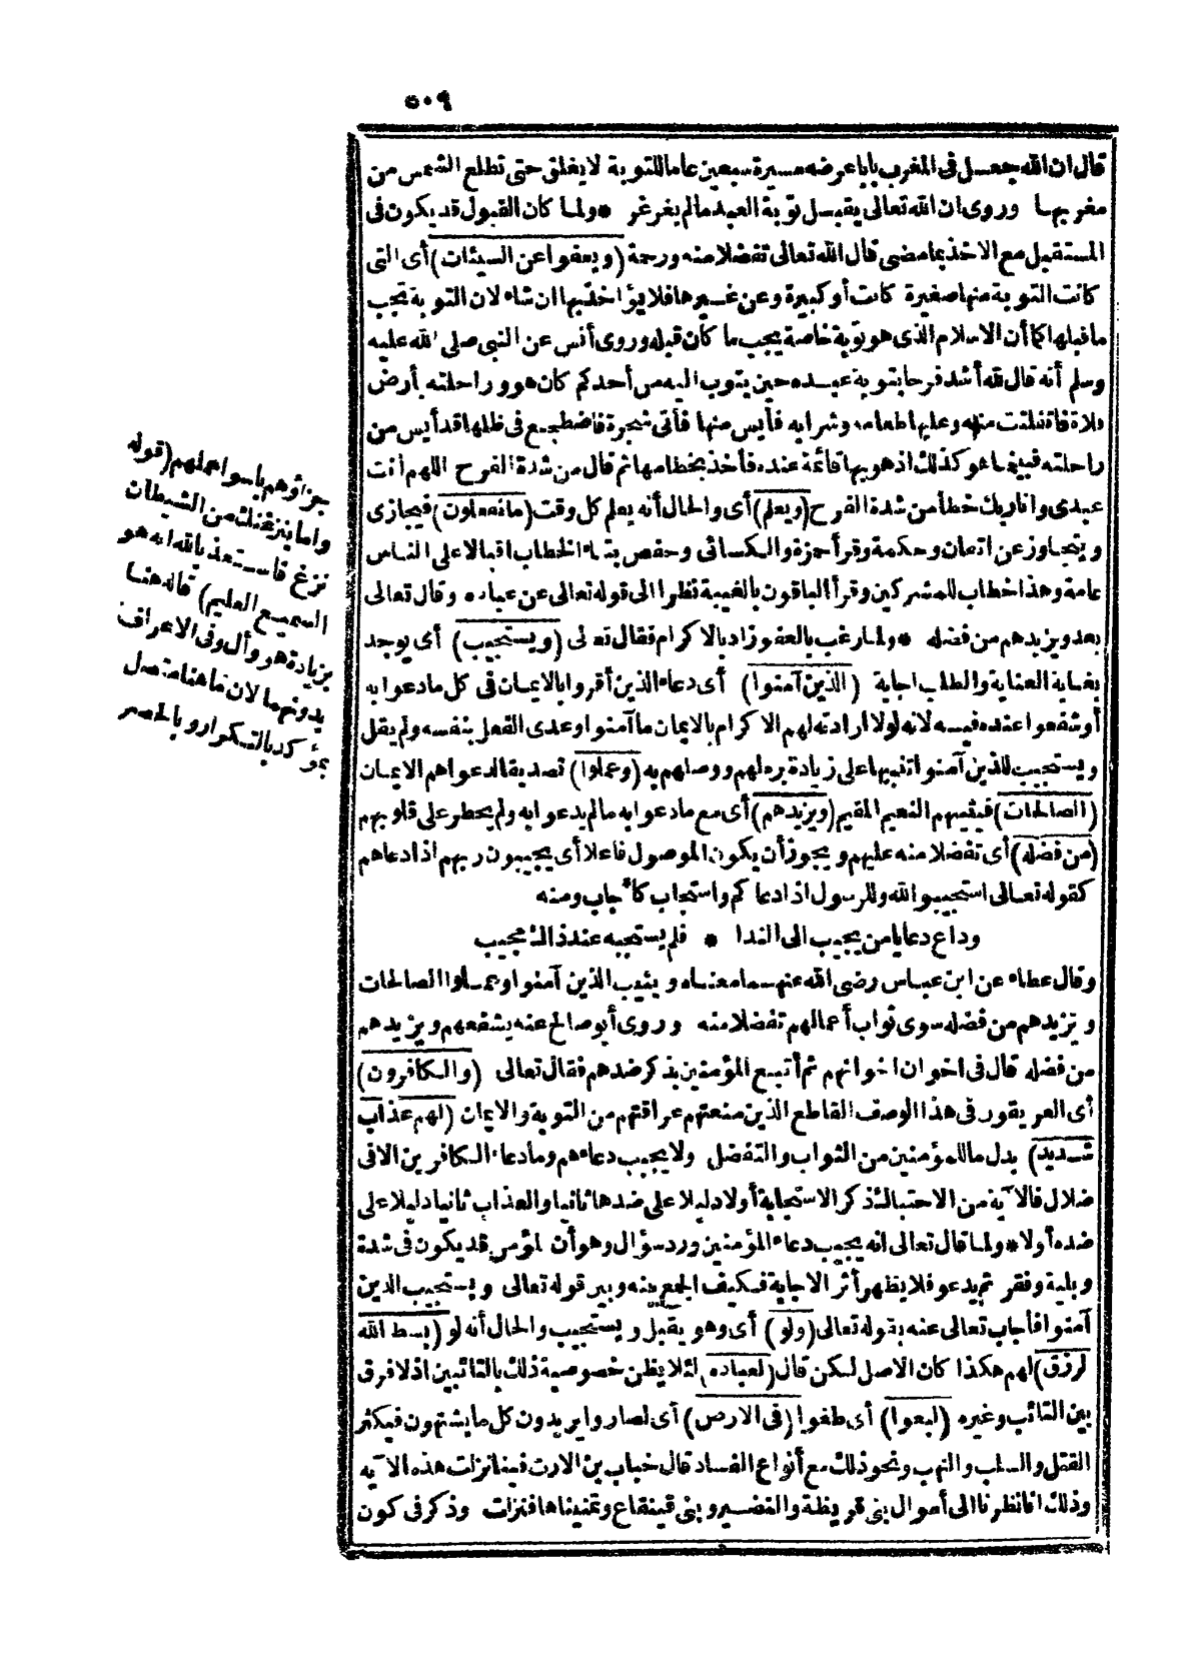 ٥٠٩
قال ان الله جعل فى المغرب بابا عرضه مسيرة سبعين عاما للتوبة لا يغلق حتى تطلع الشمس من
مغربها وروى ان الله تعالى يقبل توبة العبد مالم يغرغر * ولما كان القبول قد يكون فى
المستقبل مع الاخذ بما مضى قال الله تعالى تفضلا منه ورحمة (ويعفوا عن السيئات) أى التى
كانت التوبة منها صغيرة كانت أو كبيرة وعن غيرها فلا يؤاخذ بها ان شاء لان التوبة تجب
ما قبلها كما أن الاسلام الذى هو توبة خاصة يجب ما كان قبله وروى أنس عن النبى صلى الله عليه
وسلم أنه قال لله أشد فرحا بتوبة عبده حين يتوب اليه من أحدكم كان هو وراحلته بأرض
فلاة فانفلتت منه وعليها طعامه وشرابه فأيس منها فأتى شجرة فاضطجع فى ظلها قد أيس من
راحلته فبينما هو كذلك اذ هو بها قائمة عنده فأخذ بخطامها ثم قال من شدة الفرح اللهم أنت
عبدى وانا ربك خطأ من شدة الفرح (ويعلم) أى والحال أنه يعلم كل وقت (ما تفعلون) فيجازى
ويتجاوز عن اتقان وحكمة وقرأ حمزة والكسائى وحفص بتاء الخطاب اقبالا على الناس
عامة وهذا خطاب للمشركين وقرأ الباقون بالغيبة نظرا الى قوله تعالى عن عباده وقال تعالى
بعد ويزيدهم من فضله * ولما رغب بالعفو زاد بالاكرام فقال تعالى (ويستجيب) أى يوجد
بغاية العناية والطلب اجابة (الذين آمنوا) أى دعاء الذين أقروا بالايمان فى كل ما دعوا به
أو شفعوا عنده فيه لانه لولا ارادته لهم الاكرام بالايمان ما آمنوا وعدى الفعل بنفسه ولم يقل
ويستجيب للذين آمنوا تنبيها على زيادة بره لهم ووصلهم به (وعملوا) تصديقا لدعواهم الايمان
(الصالحات) فيثيبهم النعيم المقيم (ويزيدهم) أى مع ما دعوا به مالم يدعوا به ولم يخطر على قلوبهم
(من فضله) أى تفضلا منه عليهم ويجوز أن يكون الموصول فاعلا أى يجيبون ربهم اذا دعاهم
كقوله تعالى استجيبوا لله وللرسول اذا دعاكم واستجاب كأجاب ومنه
وداع دعا يا من يجيب الى الندا * فلم يستجبه عند ذاك مجيب
وقال عطاء عن ابن عباس رضى الله عنهما معناه ويثيب الذين آمنوا وعملوا الصالحات
ويزيدهم من فضله سوى ثواب أعمالهم تفضلا منه وروى أبو صالح عنه يشفعهم ويزيدهم
من فضله قال فى اخوان اخوانهم ثم أتبع المؤمنين بذكر ضدهم فقال تعالى (والكافرون)
أى العريقون فى هذا الوصف القاطع الذين منعتهم عراقتهم من التوبة والايمان (لهم عذاب
شديد) بدل ما للمؤمنين من الثواب والتفضل ولا يجيب دعاءهم وما دعاء الكافرين الا فى
ضلال فالآية من الاحتباك ذكر الاستجابة أولا دليلا على ضدها ثانيا والعذاب ثانيا دليلا على
ضده أولا * ولما قال تعالى انه يجيب دعاء المؤمنين ورد سؤال وهو أن المؤمن قد يكون فى شدة
وبلية وفقر ثم يدعو فلا يظهر أثر الاجابة فكيف الجمع بينه وبين قوله تعالى ويستجيب الذين
آمنوا فأجاب تعالى عنه بقوله تعالى (ولو) أى وهو يقبل ويستجيب والحال أنه لو (بسط الله
الرزق) لهم هكذا كان الاصل لكن قال (لعباده) لئلا يظن خصوصية ذلك بالتائبين اذ لا فرق
بين التائب وغيره (لبغوا) أى طغوا (فى الارض) أى لصاروا يريدون كل ما يشتهون فيكثر
القتل والسلب والنهب ونحو ذلك مع أنواع الفساد قال خباب بن الارت فينا نزلت هذه الآية
وذلك انا نظرنا الى أموال بنى قريظة والنضير وبنى قينقاع وتمنيناها فنزلت وذكر فى كون
جزاؤهم باسوا عملهم (قوله
واما ينزغنك من الشيطان
نزغ فاستعذ بالله انه هو
السميع العليم) قاله هنا
بزيادة هو وأل وفى الاعراف
بدونهما لان ما هنا متصل
بمؤكد بالتكرار وبالحصر